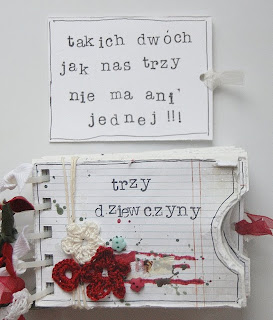 takich dwóch
jak nas trzy
nie ma ani
jednej !!!
trzy
dziewczyny